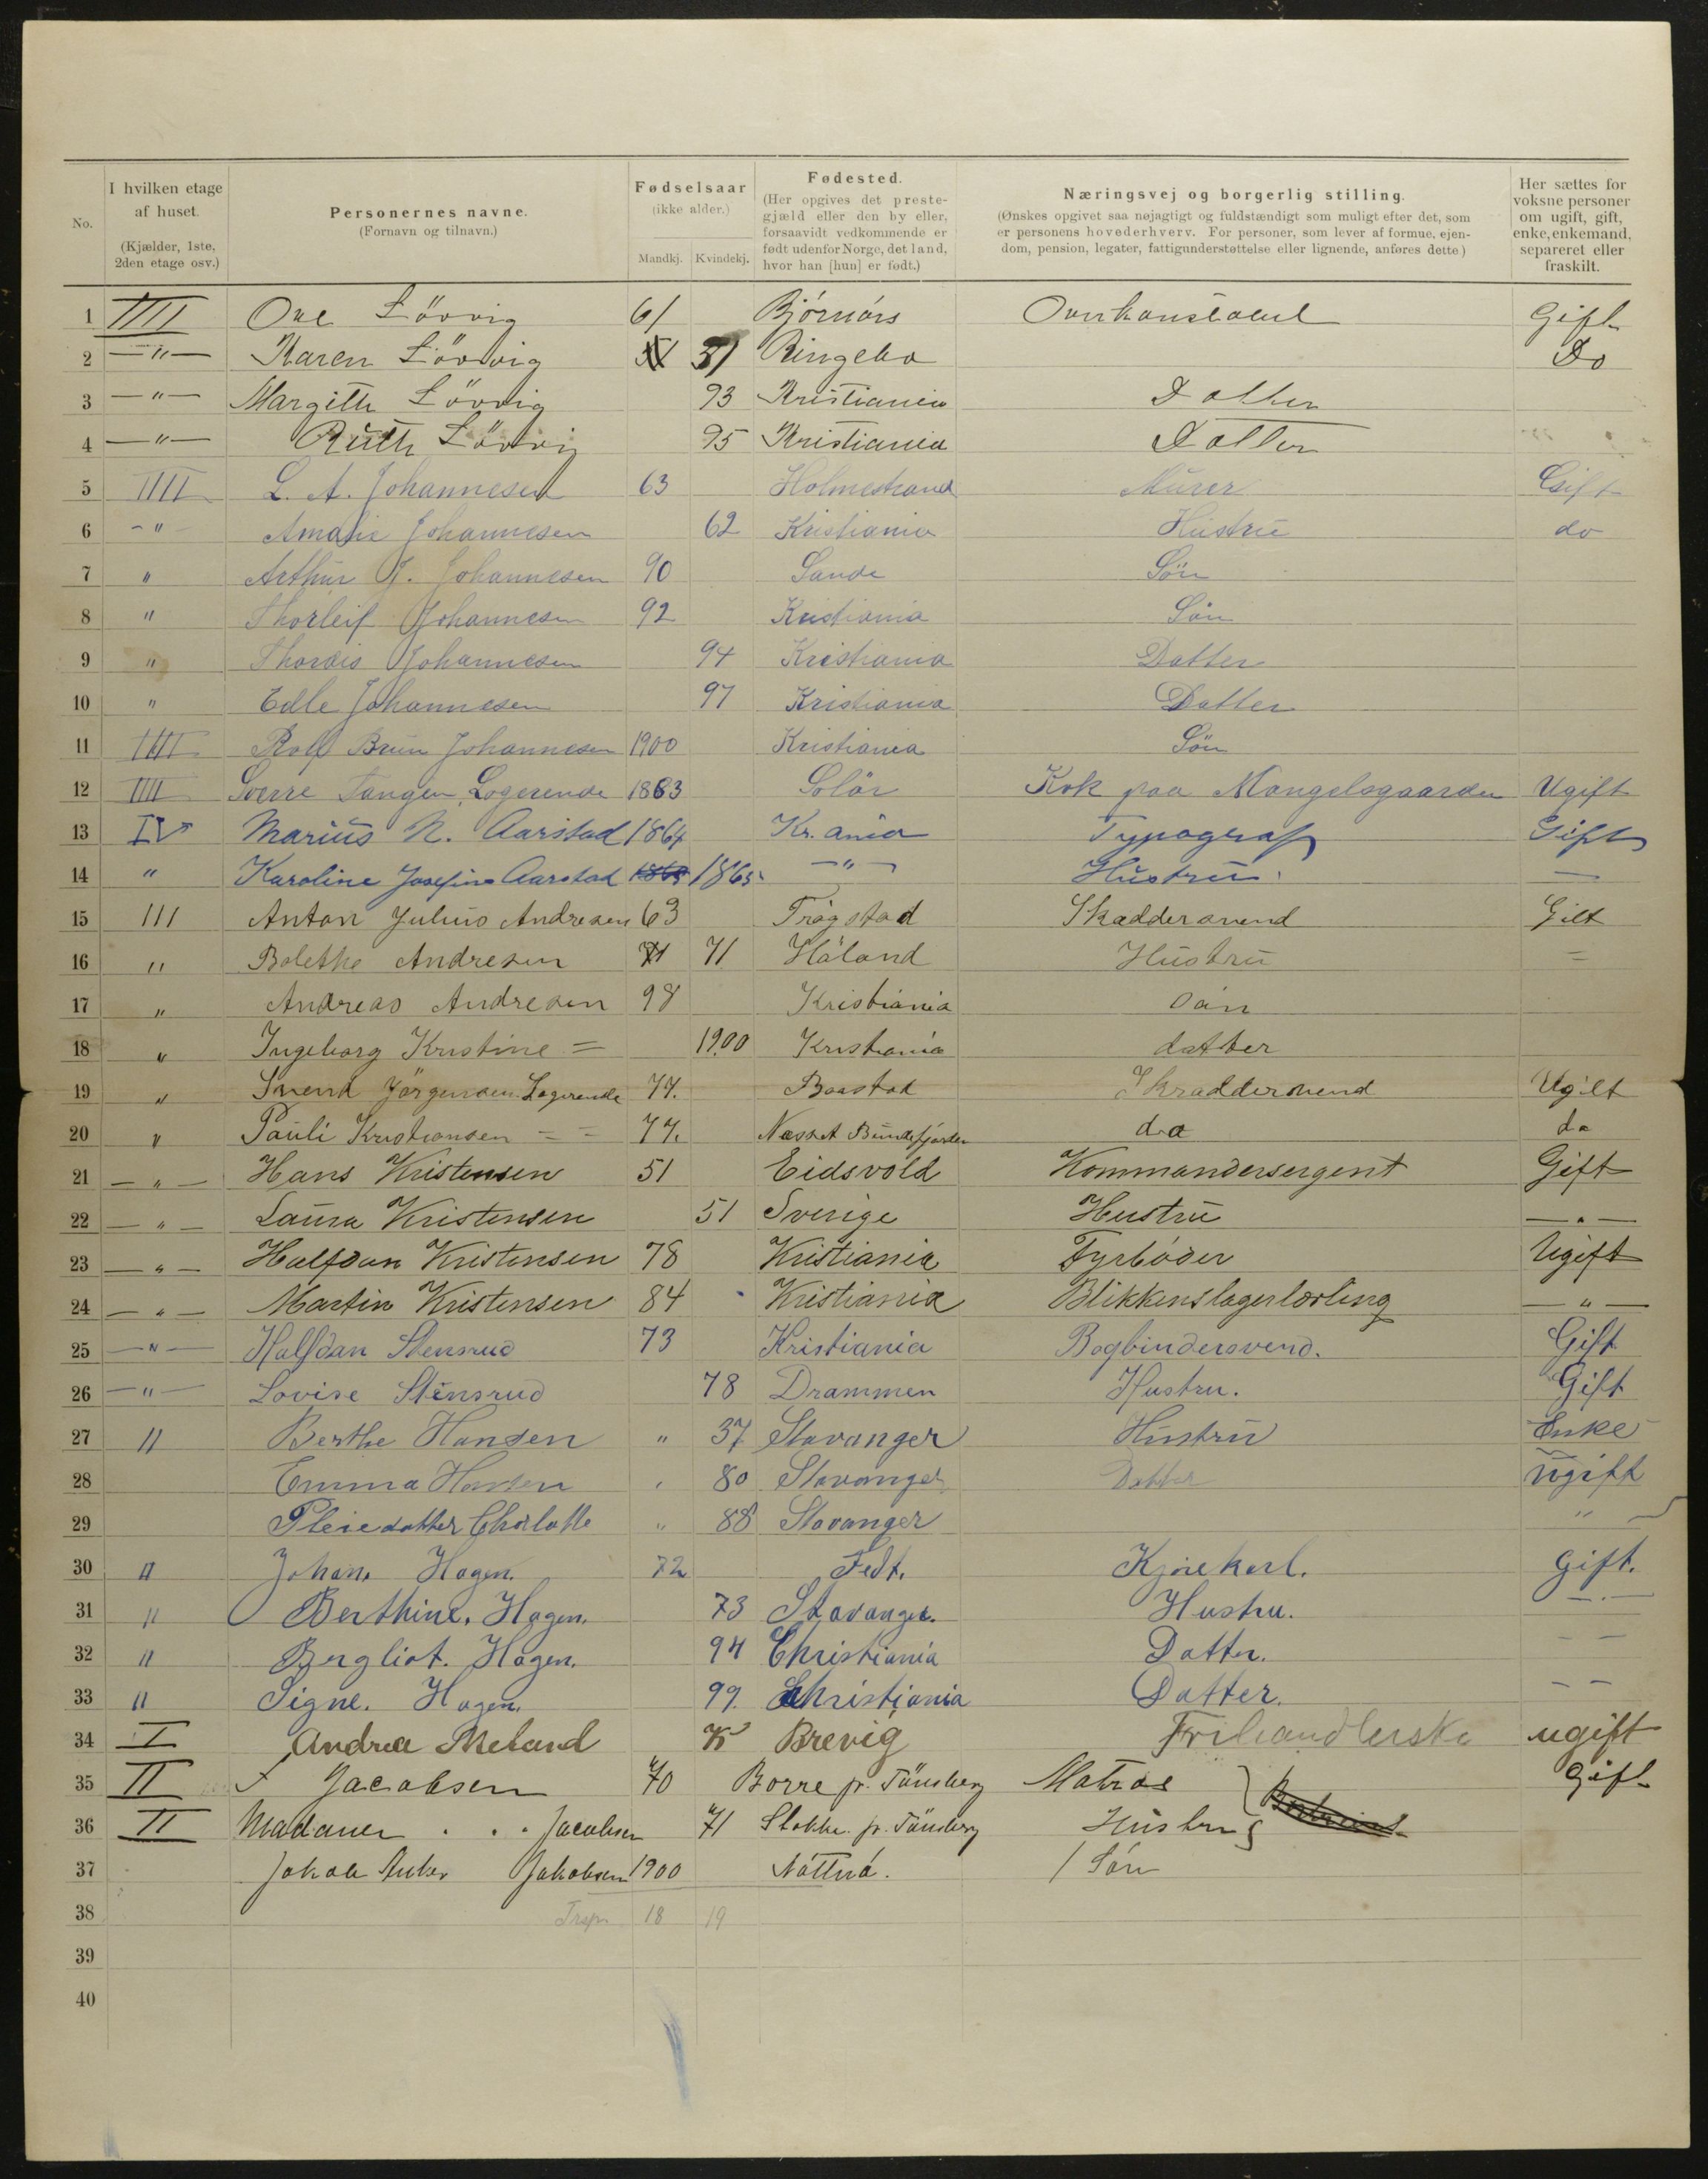 No.
I hvilken etage af huset. (Kjælder, 1ste, 2den etage osv.)
Personernes navne. (Fornavn og tilnavn.)
Fødselsaar (ikke alder.) Mandkj. Kvindekj.
Fødested. (Her opgives det prestegjæld eller den by eller, forsaavidt vedkommende er født udenfor Norge, det land, hvor han [hun] er født.)
Næringsvej og borgerlig stilling. (Ønskes opgivet saa nøjagtigt og fuldstændigt som muligt efter det, som er personens hovederhverv. For personer, som lever af formue, ejendom, pension, legater, fattigunderstøttelse eller lignende, anføres dette)
Her sættes for voksne personer om ugift, gift, enke, enkemand, separeret eller fraskilt.
1 III Ove Lövvig 61 Bjórnórs Gift
2 —"— Karen Lövvig Ringebo Do
3 —"— Margith Lövvig 93 Kristiania Datter
4 —"— Ruth Lövvig 95 Kristiania Datter
5 IIII L. A. Johannesen 63 Holmestrand Murer Gift
6 -"- Amalie Johannesen 62 Kristiania Hustru do
7 " Arthur J. Johannesen 90 Sande Sön
8 " Thorleif Johannesen 92 Kristiania Sön
9 " Thordis Johannesen 94 Kristiania Datter
10 " Edle Johannesen 97 Kristiania Datter
11 IIII Rolf Brun Johannesen 1900 Kristiania Sön
12 IIII Sverre Tangen, Logerende 1883 Solör Kok paa Mangelsgaarden Ugift
13 IV Marius N. Aarstad 1864 Kr.ania Typograf Gift
14 " Karoline Josefine Aarstad 1865 —"— Hustru. —
15 III Anton Julius Andresen 63 Trögstad Skæddersvend Gift
16 " Bolethe Andresen 71 Höland Hustru =
17 " Andreas Andresen 98 Kristiania sön
18 " Ingeborg Kristine = 1900 Kristiania datter
19 " Svend Jörgensen Logerende 77. Baastad Skræddersvend Ugift
20 " Pauli Kristiansen = = 77. Næsset Bundefjorden do do
21 —"— Hans Kristensen 51 Eidsvold Kommandersergent Gift
22 —"— Laura Kristensen 51 Sverige Hustru —"—
23 —"— Halfdan Kristensen 78 Kristiania Fyrbóder Ugift
24 —"— Martin Kristensen 84 Kristiania Blikkenslagerlærling —"—
25 —"— Halfdan Stensrud 73 Kristiania Bogbindersvend. Gift
26 —"— Lovise Stensrud 78 Drammen Hustru. Gift
27 II Berthe Hansen " 37 Stavanger Hustru Enke
28 Emma Hansen " 80 Stavanger Datter Ugift
29 Pleiedatter Charlotte " 88 Stavanger "
30 II Johan. Hagen. 72 Fedt. Kjørekarl. Gift.
31 II Berthine. Hagen. 73 Stavanger. Hustru. —"—
32 II Bergliot. Hagen. 94 Christiania Datter. — —
33 II Signe. Hagen. 99. Christiania Datter. — —
34 I Andrea Meland Brevig Frihandlerske ugift
35 II Jacobsen 70 Borre pr. Tönsberg Matros Gift
36 II Madamen . . . Jacobsen 71 Stokke pr. Tönsberg Hustru
37 Jakob Anker Jakobsen 1900 Nótteró. Sön
38 Trsp. 18 19
39
40